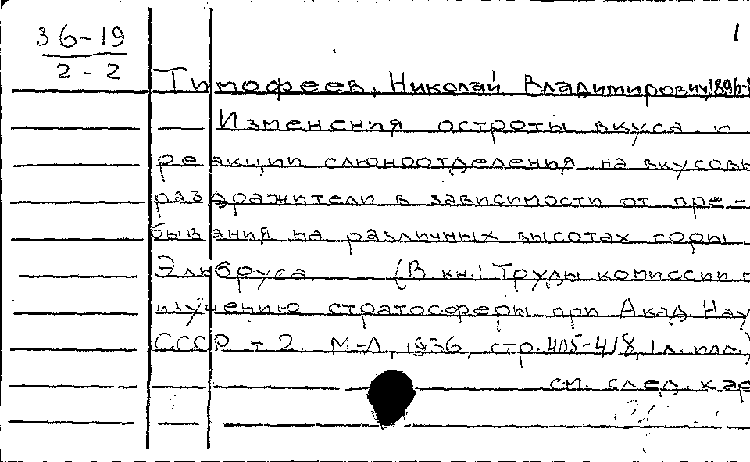 36-19
2-2
1
Тимофеев, Николай Владимирович, 1896-
Изменения остроты вкуса и
реакции слюноотделения на вкусовы
раздражители в зависимости от пре-
бывания на различных высотах горы
Эльбруса (В кн.: Труды комиссии п
изучению стратосферы при Акад Нау
СССР т 2. М-Л, 1936, стр. 405-418, 1 л. илл.)
см. след. кар